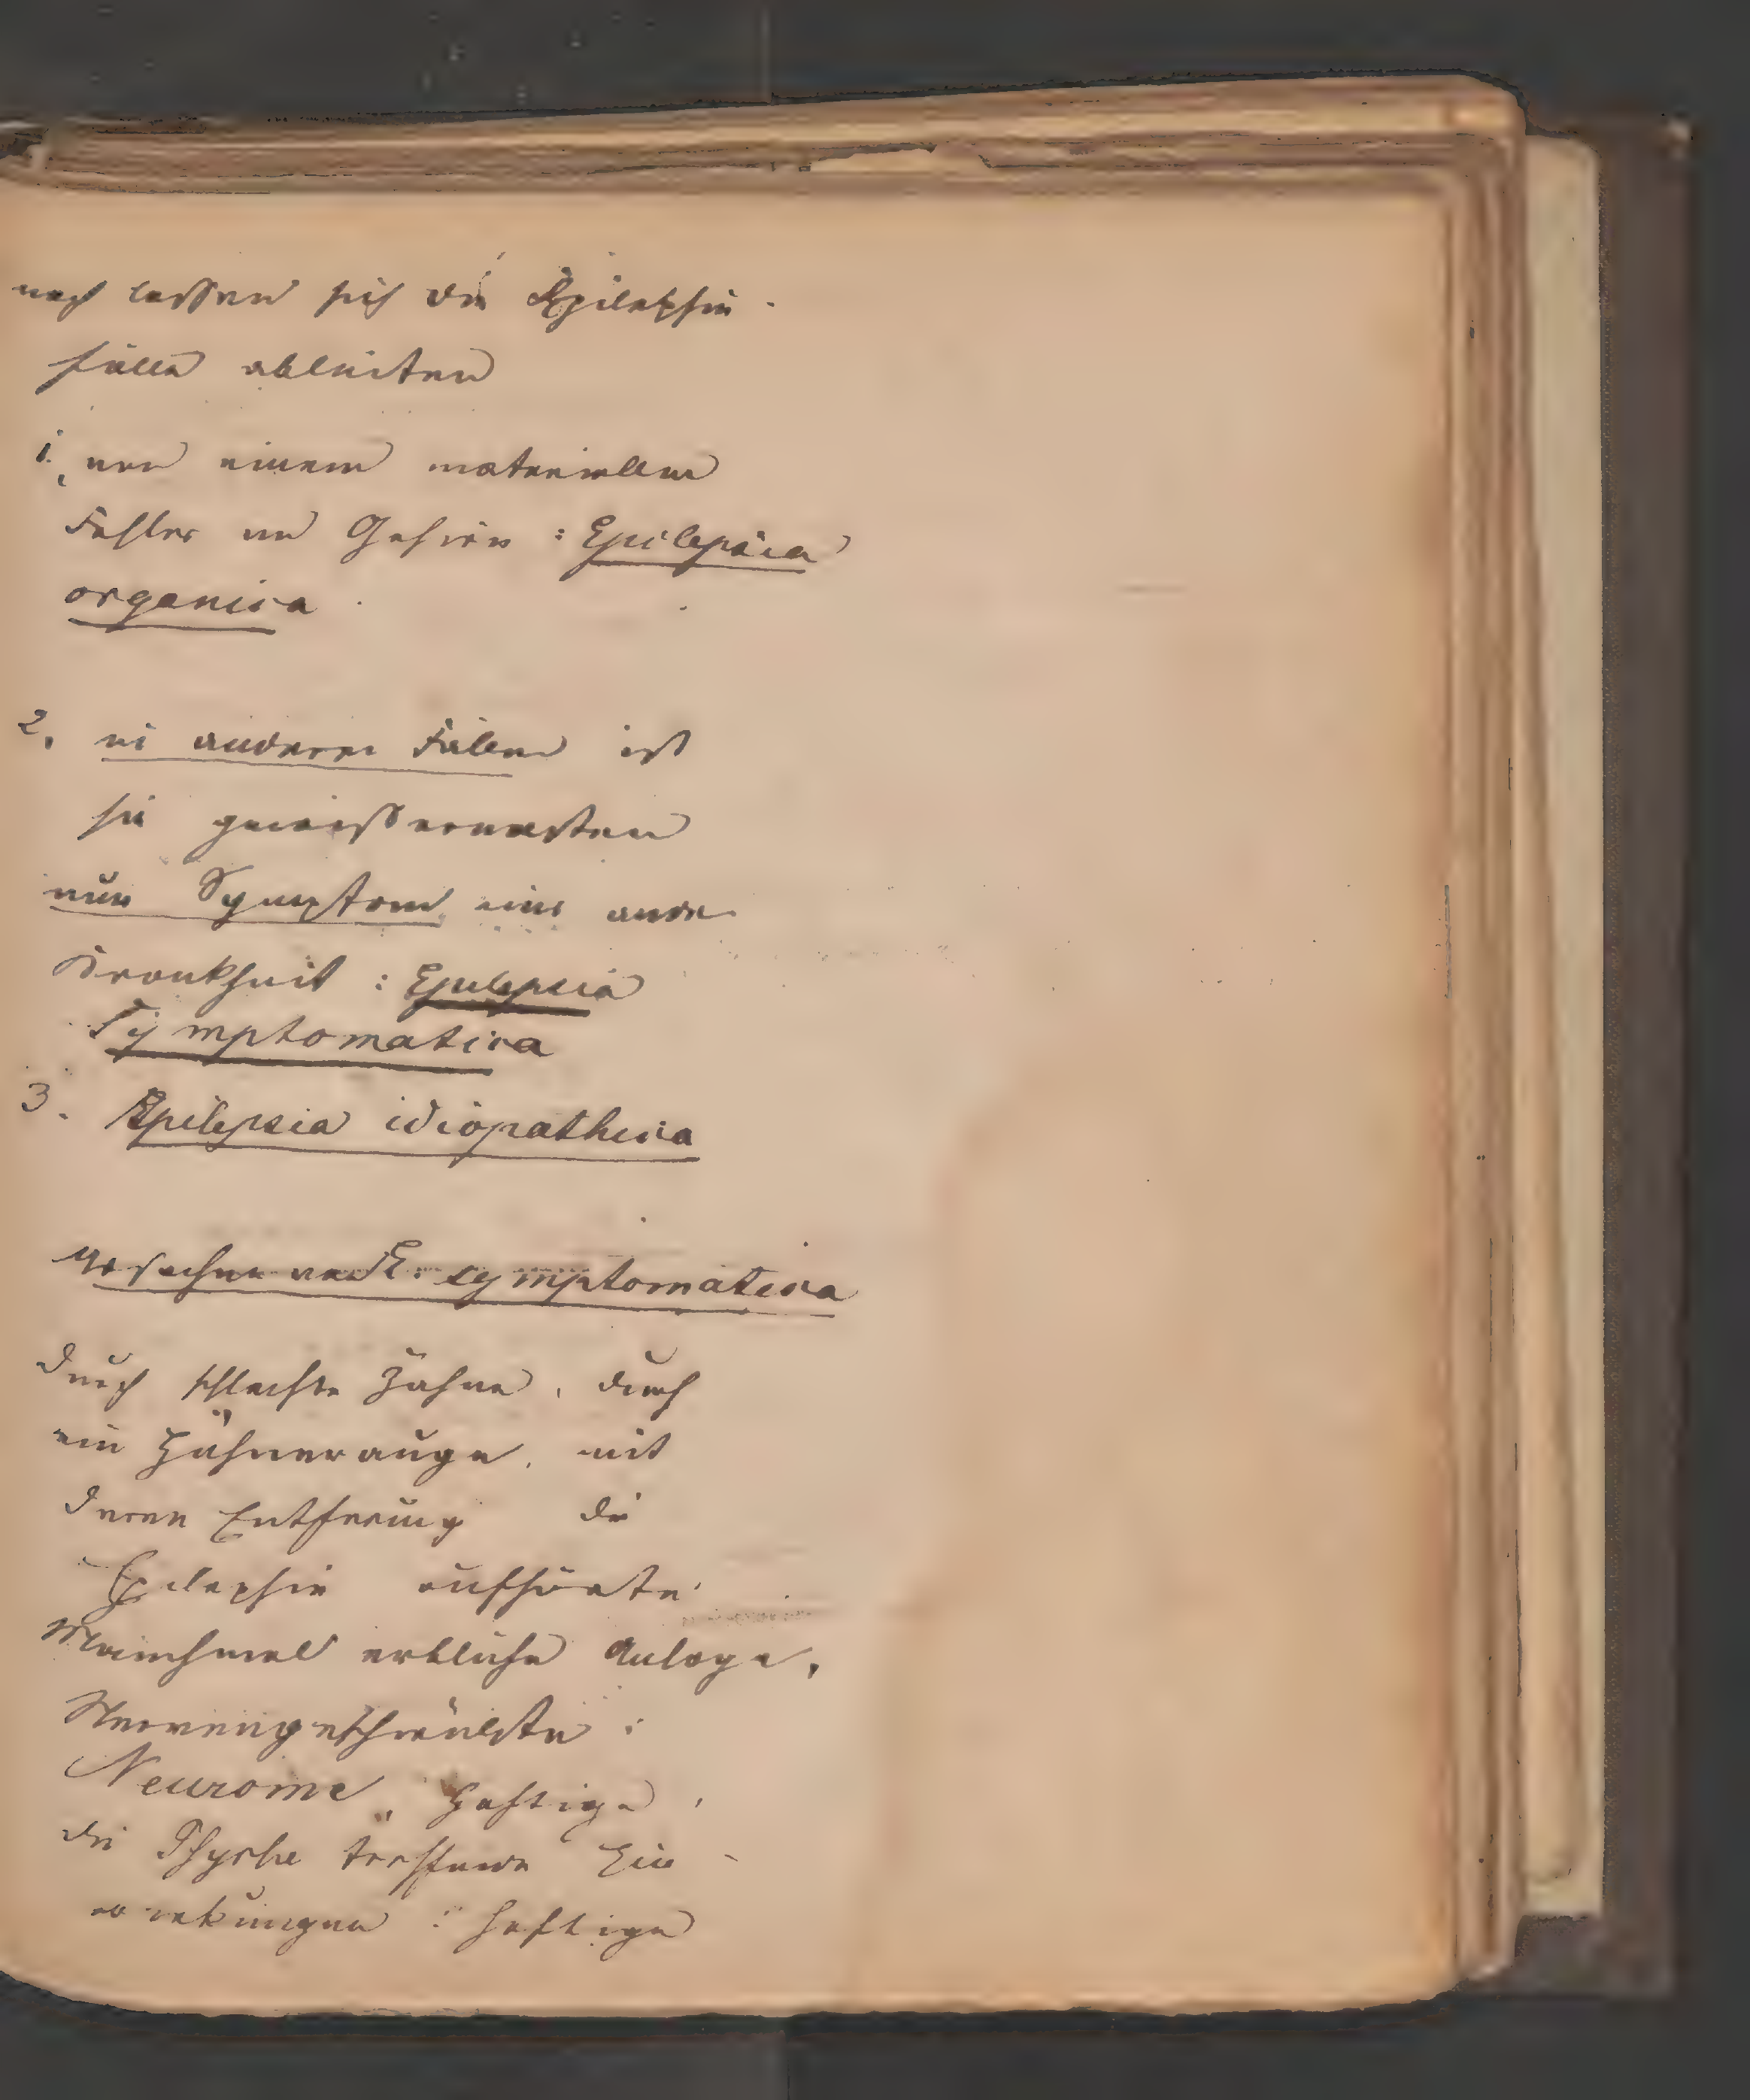 nach lassen sich die Epilepsie-
fälle ableiten
1. von einem materiellen
Fehler im Gehirn : Epilepsia
organica
2. in anderen Fällen ist
sie gewissermassen
nur Symptom eine ande
Krankheit : Epilepsia
Symptomatica
3. Epilepsia idiopathica
Ursachen von E. symptomatica
durch schlechte Zähne, durch
ein Hühnerauge, mit
deren Entfernung die
Epilepsie aufhörte
Manchmal erbliche Anlage,
Nervengeschwülste :
Neurome, Heftige,
die Psyche treffende Ein-
wirkungen : heftige